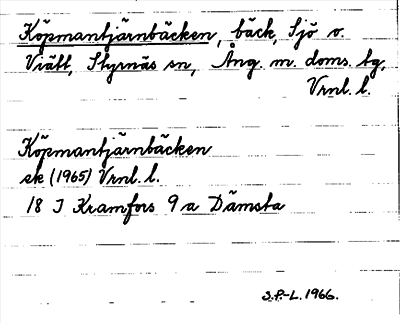 Köpmantjärnbäcken, bäck, Sjö o.
Vrätt, Styrnäs sn, Ång. m. doms. tg,
Vrnl. l.
Köpmantjärnbäcken
ek (1965) Vrnl. l.
18 J Kramfors 9 a Dämsta
S.P.-L. 1966.